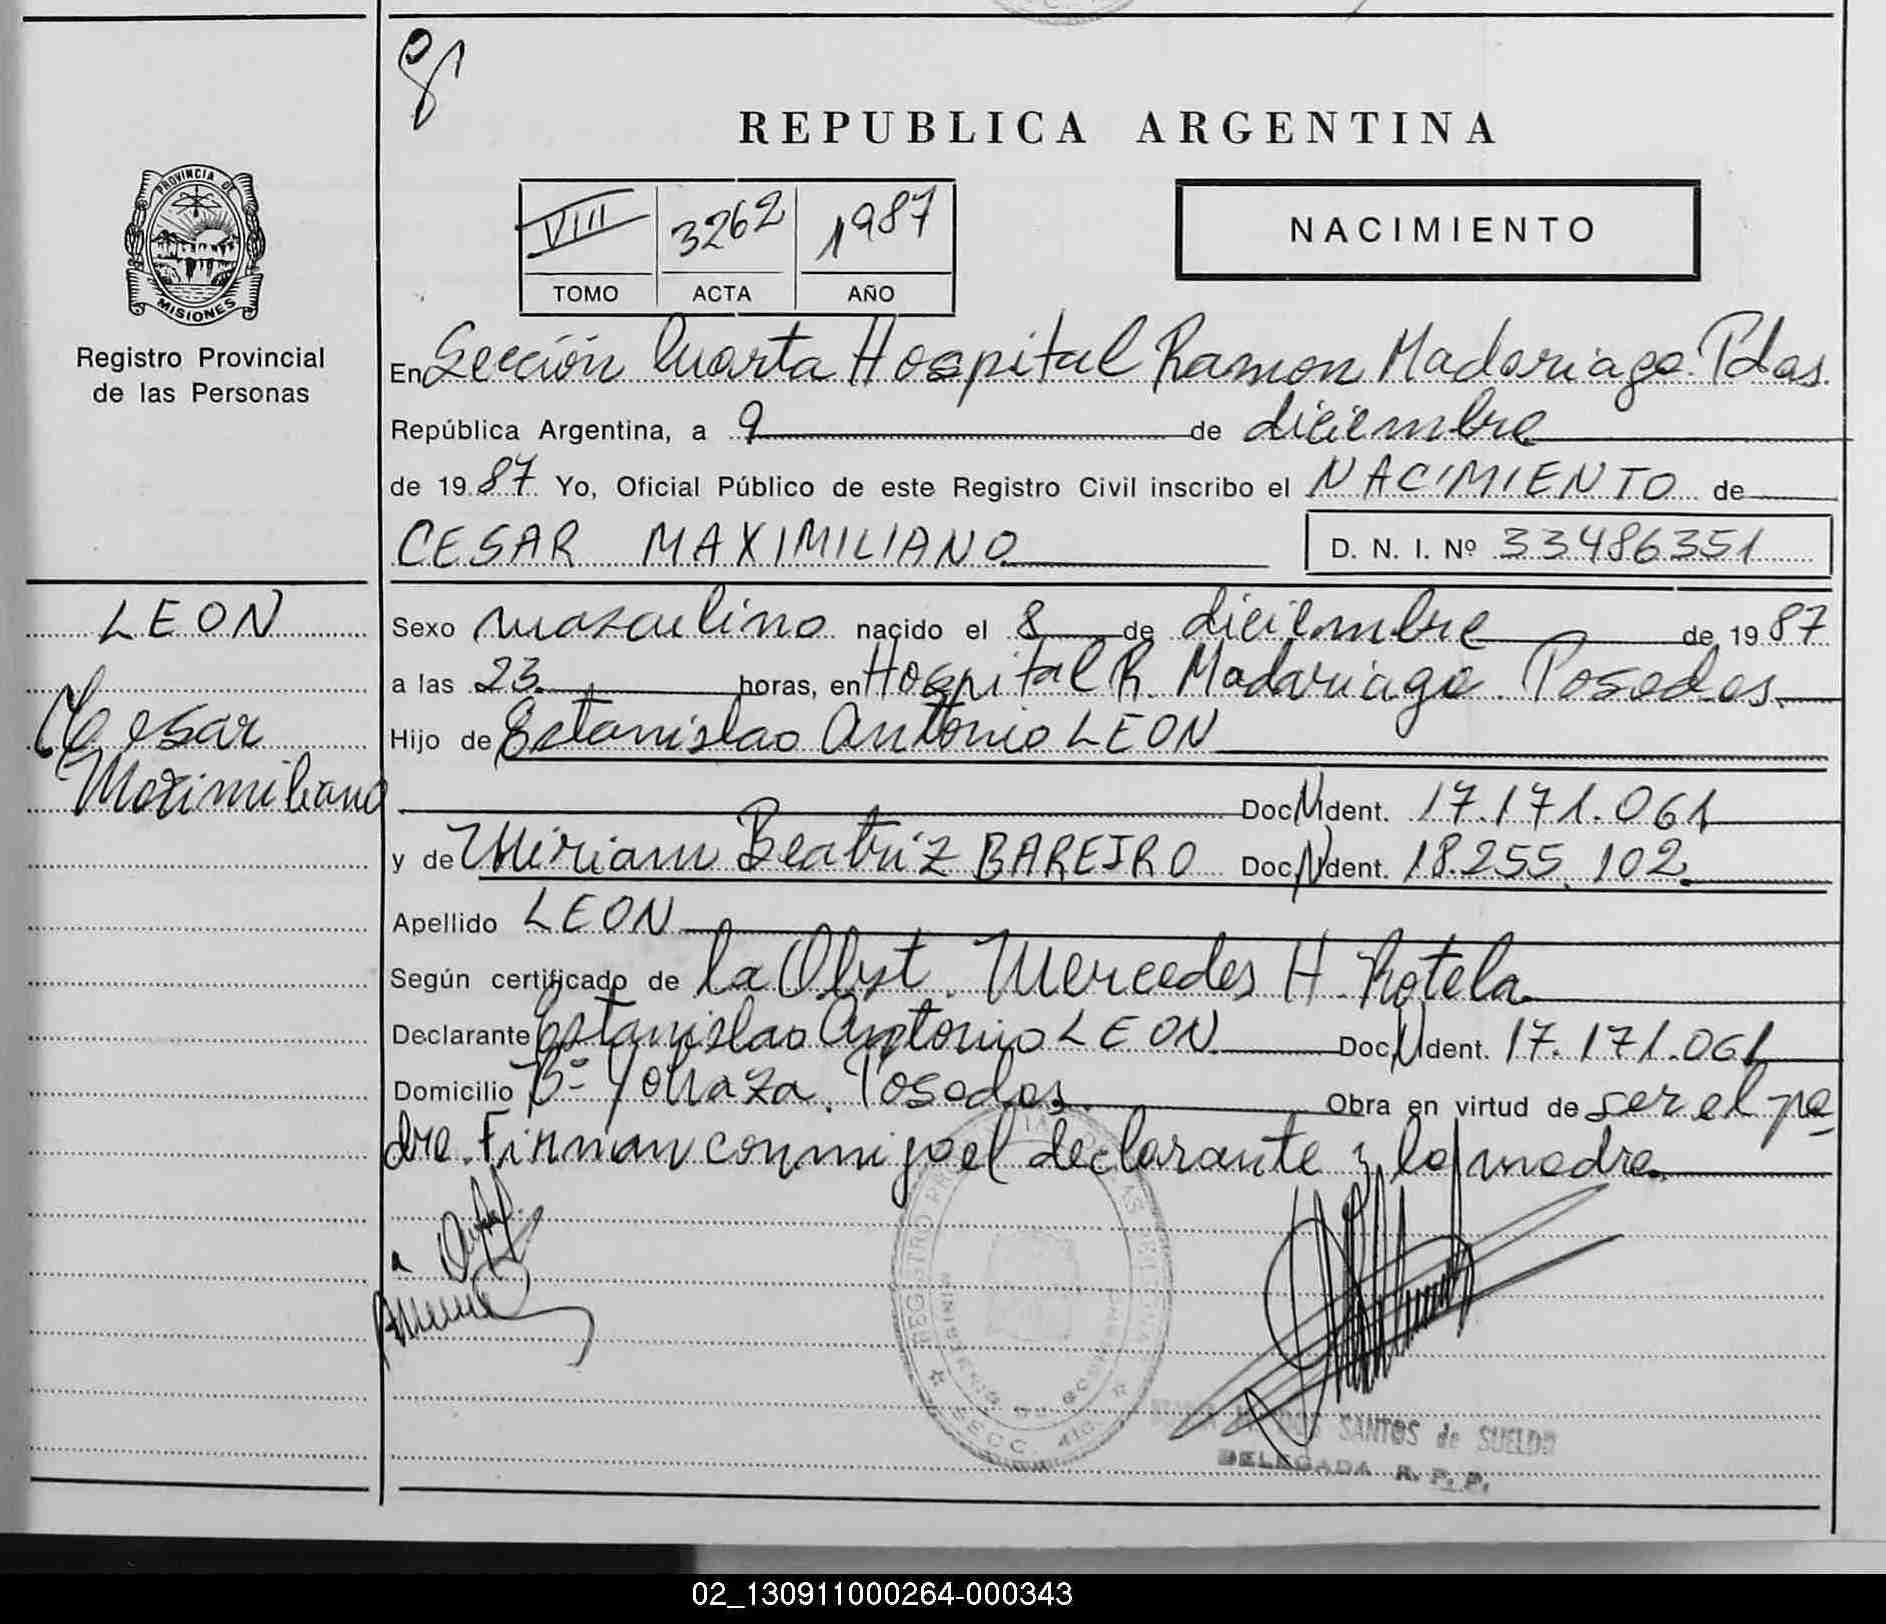 REPUBLICA ARGENTINA
PROVINCIA DE
MISIONES
Registro Provincial
de las Personas
VIII 3262 1987
TOMO ACTA AÑO
NACIMIENTO
En Sección Cuarta Hospital Ramon Madariaga. Pdas.
República Argentina, a 9 de diciembre
de 1987 Yo, Oficial Público de este Registro Civil inscribo el NACIMIENTO de
CESAR MAXIMILIANO
D. N. I. Nº 33486351
LEON
Cesar
Maximiliano
Sexo masculino nacido el 8 de diciembre de 1987
a las 23 horas, en Hospital R. Madariaga. Posadas.
Hijo de Estanislao Antonio LEON
Doc. N Ident. 17.171.061
y de Miriam Beatriz BAREIRO Doc. N Ident. 18.255.102
Apellido LEON
Según certificado de la Obst. Mercedes H. Rotela
Declarante Estanislao Antonio LEON Doc. N Ident. 17.171.061
Domicilio Bº Posadas Obra en virtud de ser el pa
dre. Firman conmigo el declarante y la madre
REGISTRO
MINISTERIO DE GOBIERNO
SECC. 4ta
SANTOS de SUELDO
DELEGADA R. P. P.
02_130911000264-000343